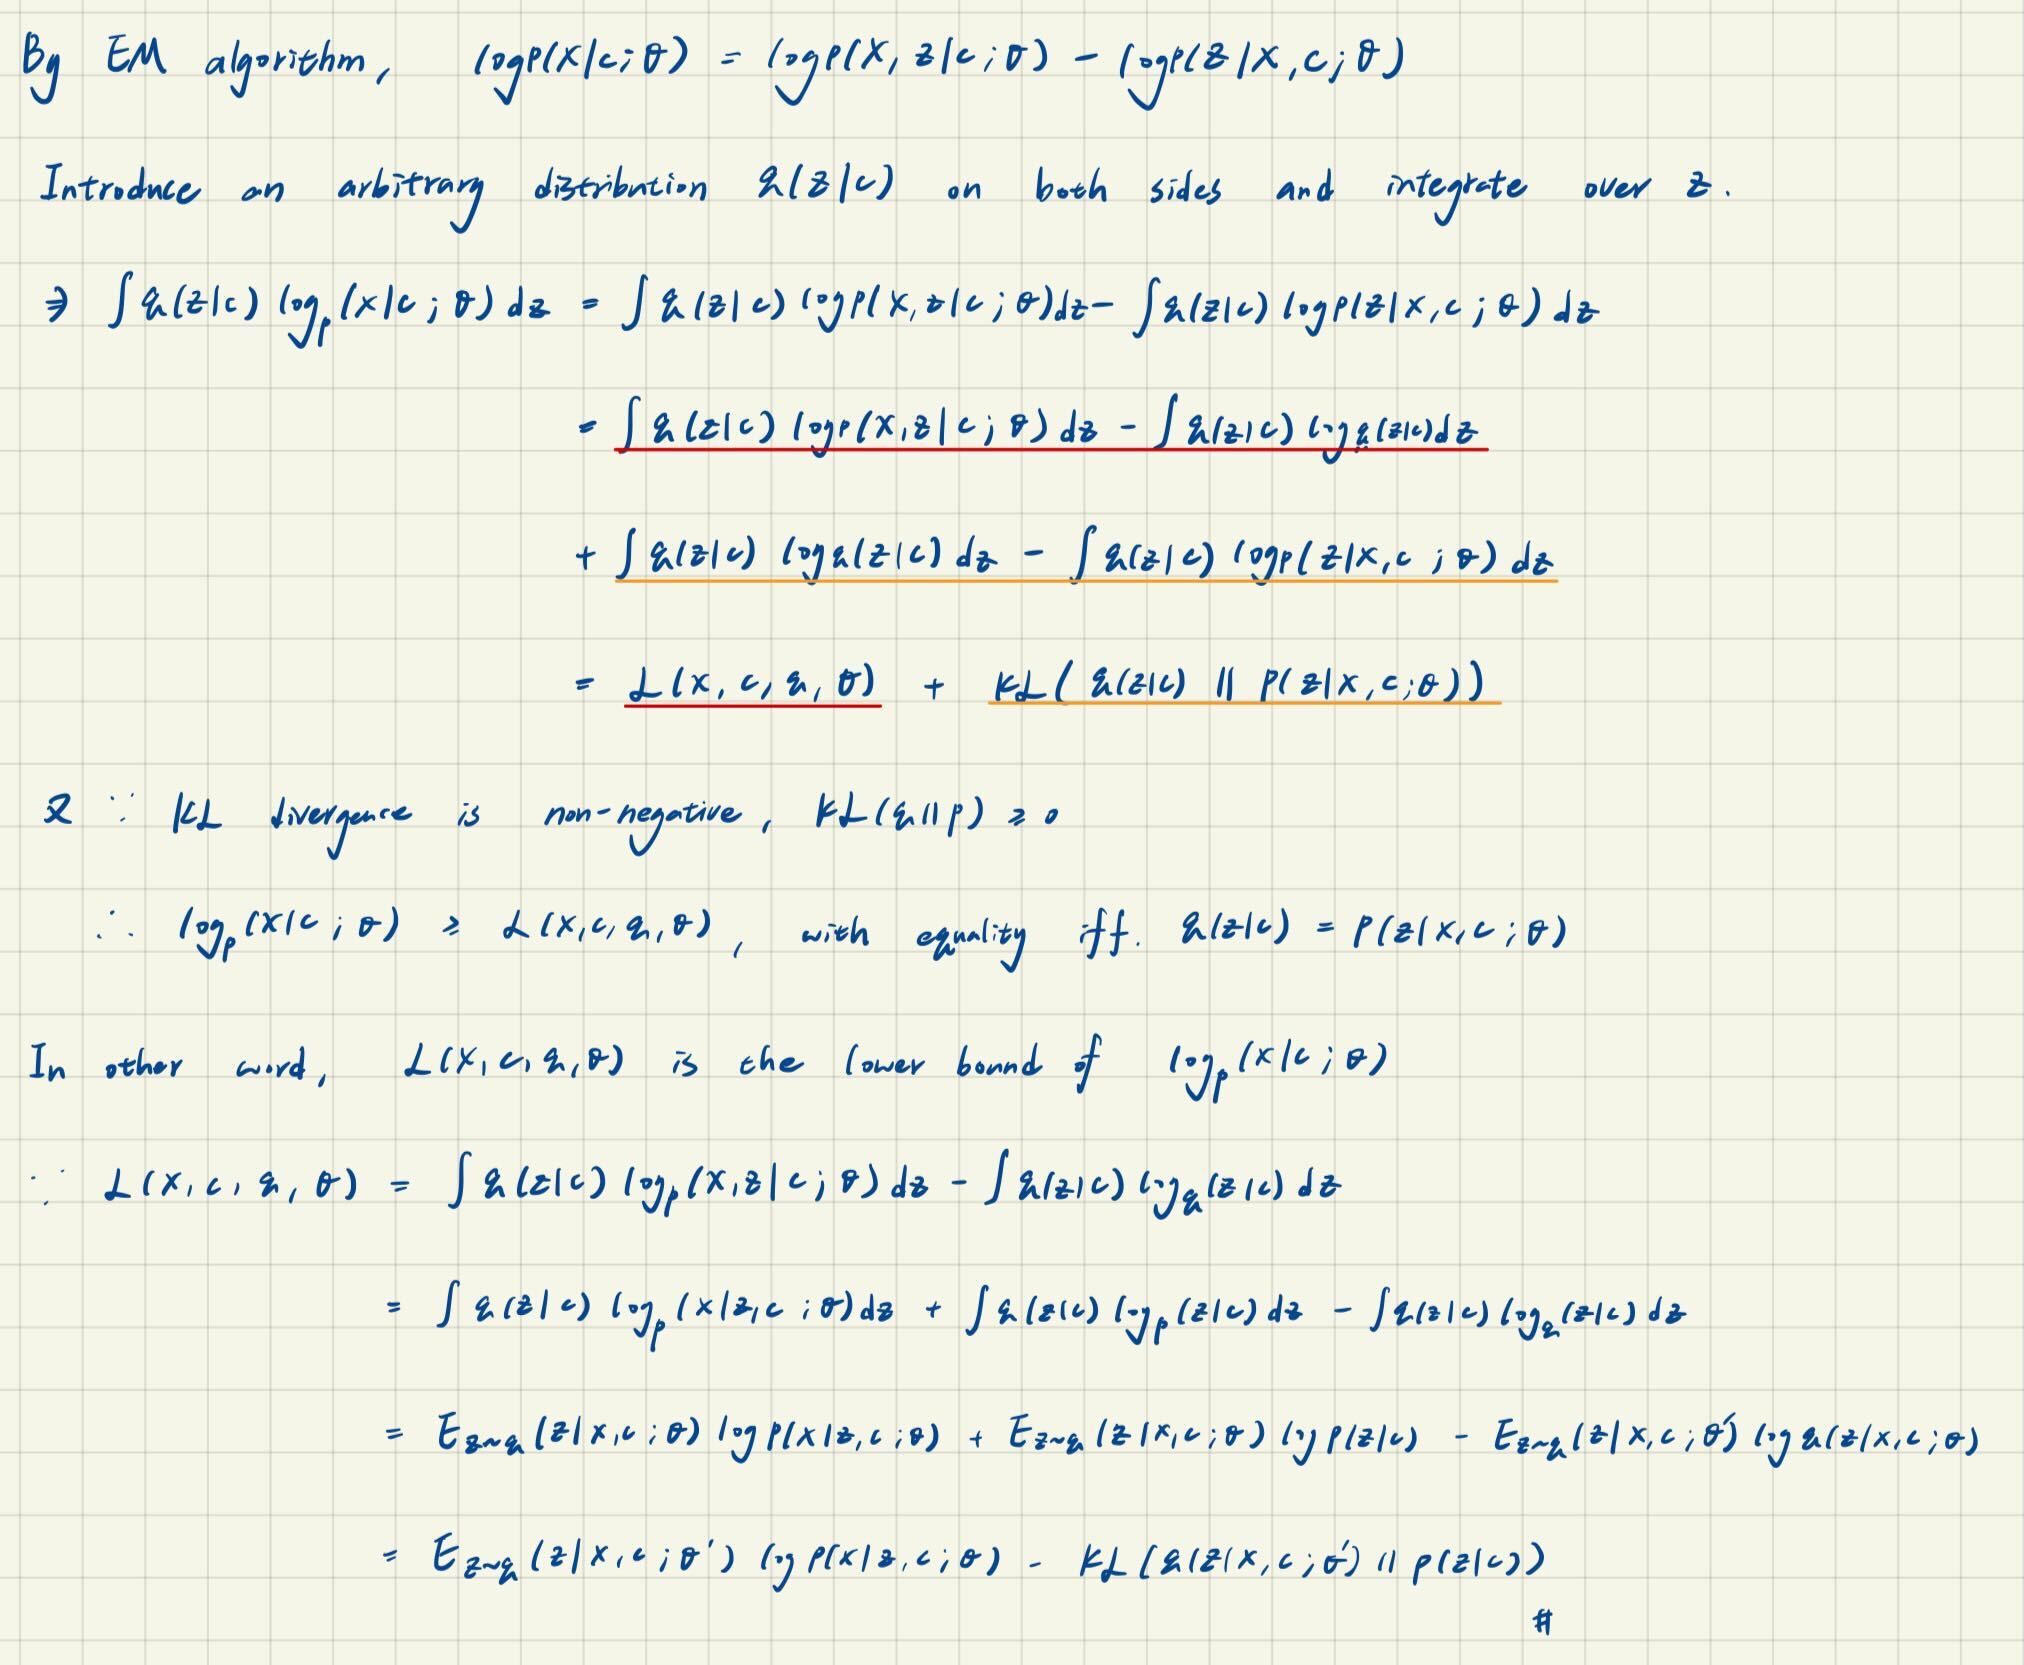 By EM algorithm, log p(X|c;θ) = log p(X, z|c;θ) − log p(z|X,c;θ)
Introduce an arbitrary distribution q(z|c) on both sides and integrate over z.
⇒ ∫ q(z|c) log p(x|c;θ) dz = ∫ q(z|c) log p(x,z|c;θ)dz − ∫ q(z|c) log p(z|x,c;θ) dz
= ∫ q(z|c) log p(x,z|c;θ) dz − ∫ q(z|c) log q(z|c)dz
+ ∫ q(z|c) log q(z|c) dz − ∫ q(z|c) log p(z|x,c;θ) dz
= L(x,c,q,θ) + KL(q(z|c) || p(z|x,c;θ))
又 ∵ KL divergence is non-negative, KL(q||p) ≥ 0
∴ log p(x|c;θ) ≥ L(x,c,q,θ), with equality iff. q(z|c) = p(z|x,c;θ)
In other word, L(x,c,q,θ) is the lower bound of log p(x|c;θ)
∵ L(x,c,q,θ) = ∫ q(z|c) log p(x,z|c;θ) dz − ∫ q(z|c) log q(z|c) dz
= ∫ q(z|c) log p(x|z,c;θ)dz + ∫ q(z|c) log p(z|c) dz − ∫ q(z|c) log q(z|c) dz
= E z~q (z|x,c;θ) log p(x|z,c;θ) + E z~q (z|x,c;θ) log p(z|c) − E z~q (z|x,c;θ') log q(z|x,c;θ)
= E z~q (z|x,c;θ') log p(x|z,c;θ) − KL(q(z|x,c;θ') || p(z|c))
#